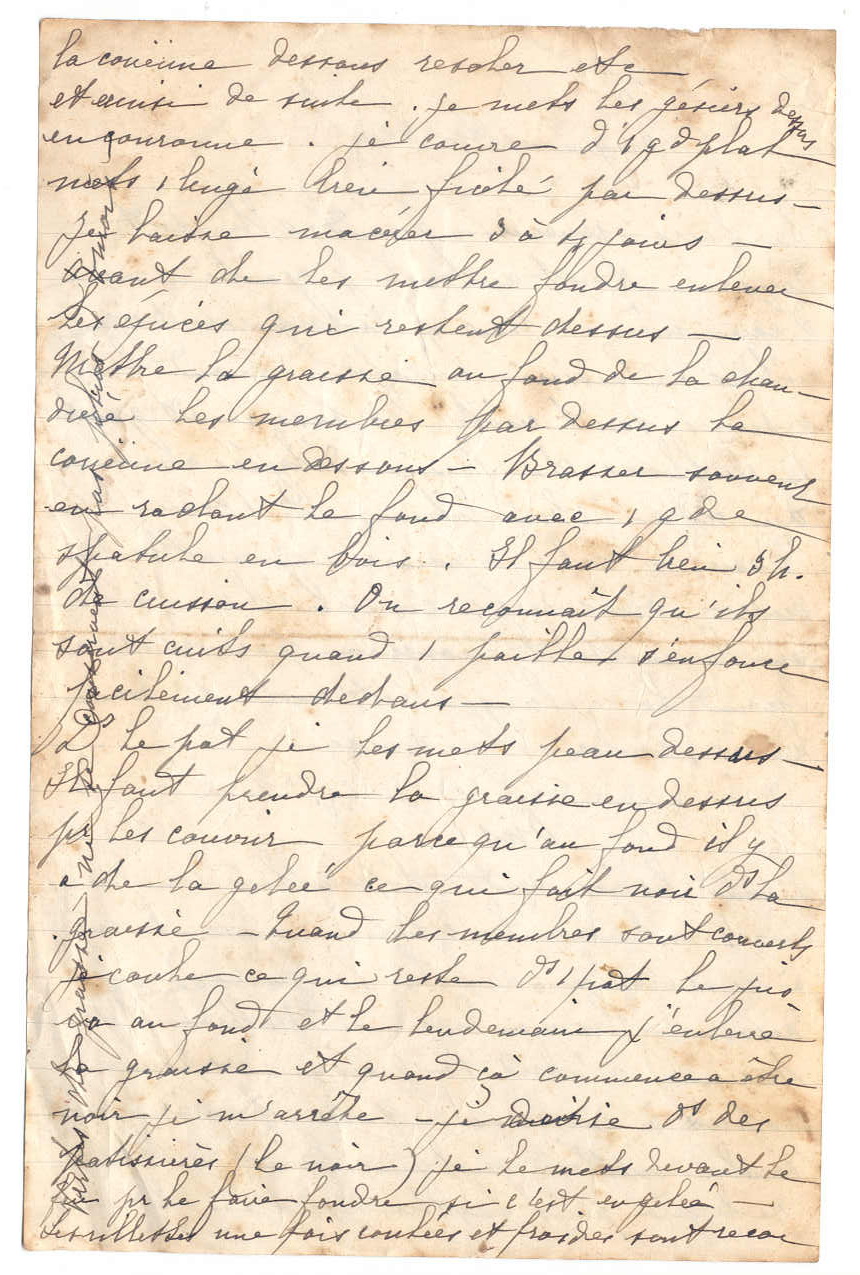 la couëinne dessous resaler etc
et ainsi de suite. je mets les gésiers dessus
en couronne. je couvre d'1 gd plat
mets 1 linge bien ficelé par dessus —
Je laisse macérer 3 à 4 jours —
avant de les mettre fondre enlever
les épices qui restent dessus —
Mettre la graisse au fond de la chau-
dière les membres par dessus la
couëinne en dessous — Brasser souvent
en raclant le fond avec 1 gde
spatule en bois. Il faut bien 3h.
de cuisson. On reconnaît qu'ils
sont cuits quand 1 paille s'enfonce
facilement dedans —
Ds le pot je les mets peau dessus —
Il faut prendre la graisse en dessus
pr les couvrir parce qu'au fond il y
a de la gelée ce qui fait noir ds la
graisse — Quand les membres sont couverts
je coule ce qui reste ds 1 pot le jus
va au fond et le lendemain j'enlève
la graisse et quand ça commence a être
noir je m'arrête — je ds des
patissières (le noir) je le mets devant le
feu pr le faire fondre si c'est en gelée —
Les rillettes une fois coulées et froides sont recou
de graisse ne se conservent pas plus